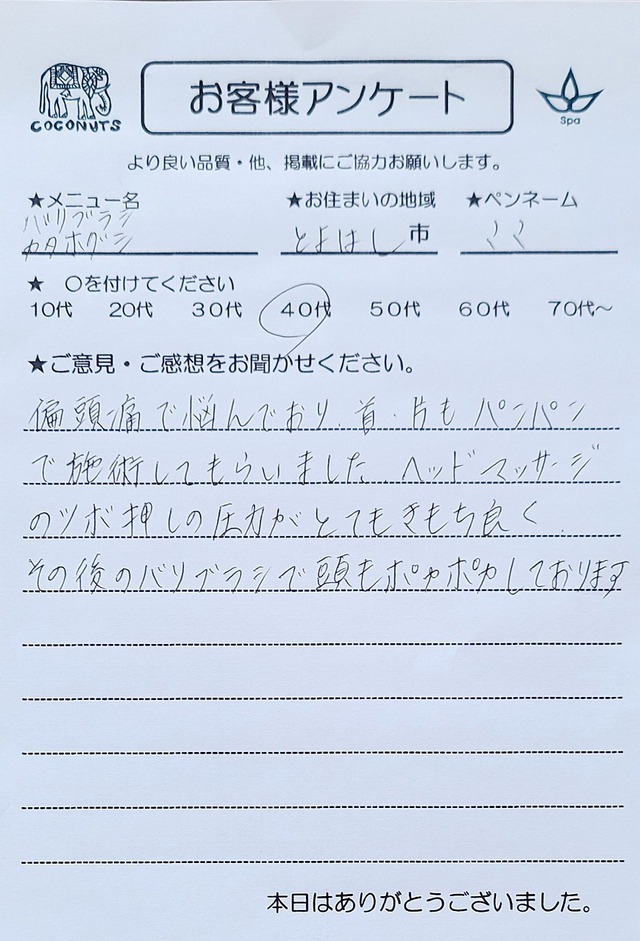 COCONUTS
お客様アンケート
Spa
より良い品質・他、掲載にご協力お願いします。
★メニュー名 ★お住まいの地域 ★ペンネーム
バリブラシ
カタホグシ とよはし市 ミミ
★ 〇を付けてください
10代 20代 30代 40代 50代 60代 70代～
★ご意見・ご感想をお聞かせください。
偏頭痛で悩んでおり、首、片もパンパン
で施術してもらいました。ヘッドマッサージ
のツボ押しの圧力がとてもきもち良く、
その後のバリブラシで頭もポカポカしております
本日はありがとうございました。